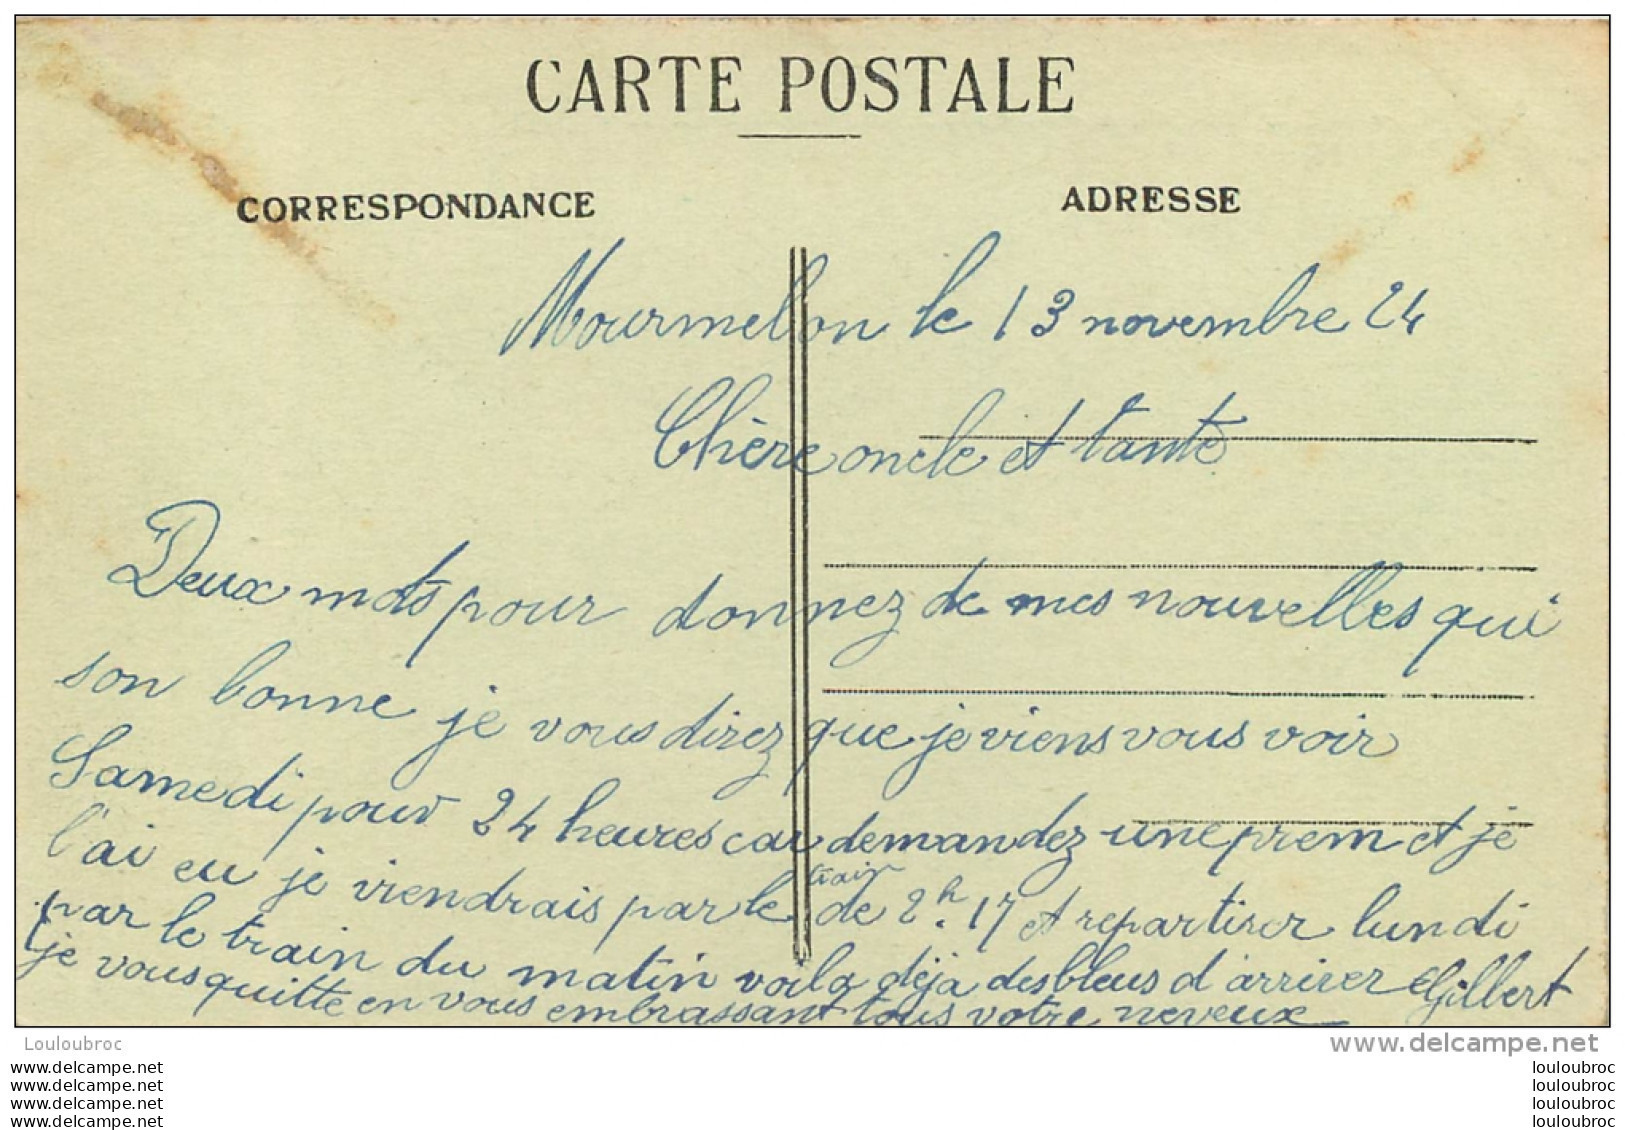 CARTE POSTALE
CORRESPONDANCE
ADRESSE
Mourmelon le 13 novembre 24
Chère oncle et tante
Deux mots pour donnez de mes nouvelles qui
son bonne je vous direz que je viens vous voir
Samedi pour 24 heures car demandez une prem et je
l'ai eu je viendrais par le train de 2h. 17 et repartirer lundi
par le train du matin voila déja des bleus d'arriver Gilbert
je vous quitte en vous embrassant tous votre neveux
Louloubroc
www.delcampe.net
www.delcampe.net
louloubroc
www.delcampe.net
louloubroc
www.delcampe.net
louloubroc
www.delcampe.net
louloubroc